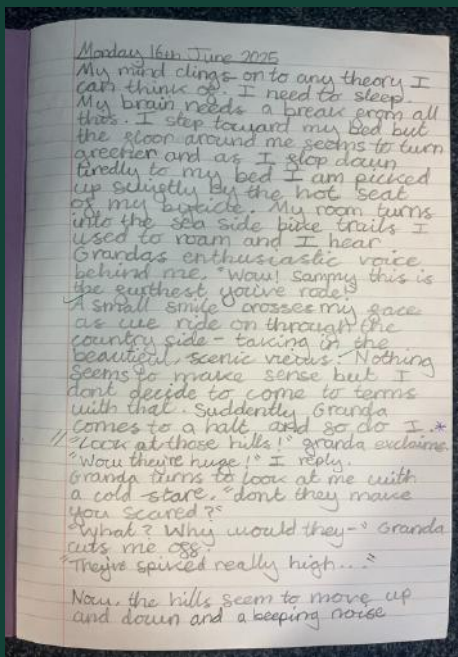 Monday 16th June 2025
My mind clings on to any theory I
can think of. I need to sleep.
My brain needs a break from all
this. I step toward my bed but
the floor around me seems to turn
greener and as I flop down
tiredly to my bed I am picked
up swiftly by the hot seat
of my bycicle. My room turns
into the sea side bike trails I
used to roam and I hear
Grandas enthusiastic voice
behind me. "Wow! Sammy this is
the furthest you've rode!"
A small smile crosses my face
as we ride on through the
country side - taking in the
beautiful, scenic views. Nothing
seems to make sense but I
dont decide to come to terms
with that. Suddenly Granda
comes to a halt, and so do I.*
// "Look at those hills!" granda exclaims.
"Wow they're huge!" I reply.
Granda turns to look at me with
a cold stare. "dont they make
you scared?"
"What? Why would they-" Granda
cuts me off.
"They're spiked really high..."
Now, the hills seem to move up
and down and a beeping noise